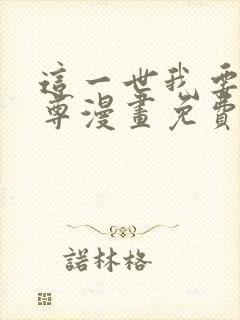 這一世我要
尊漫畫免費
諾林格